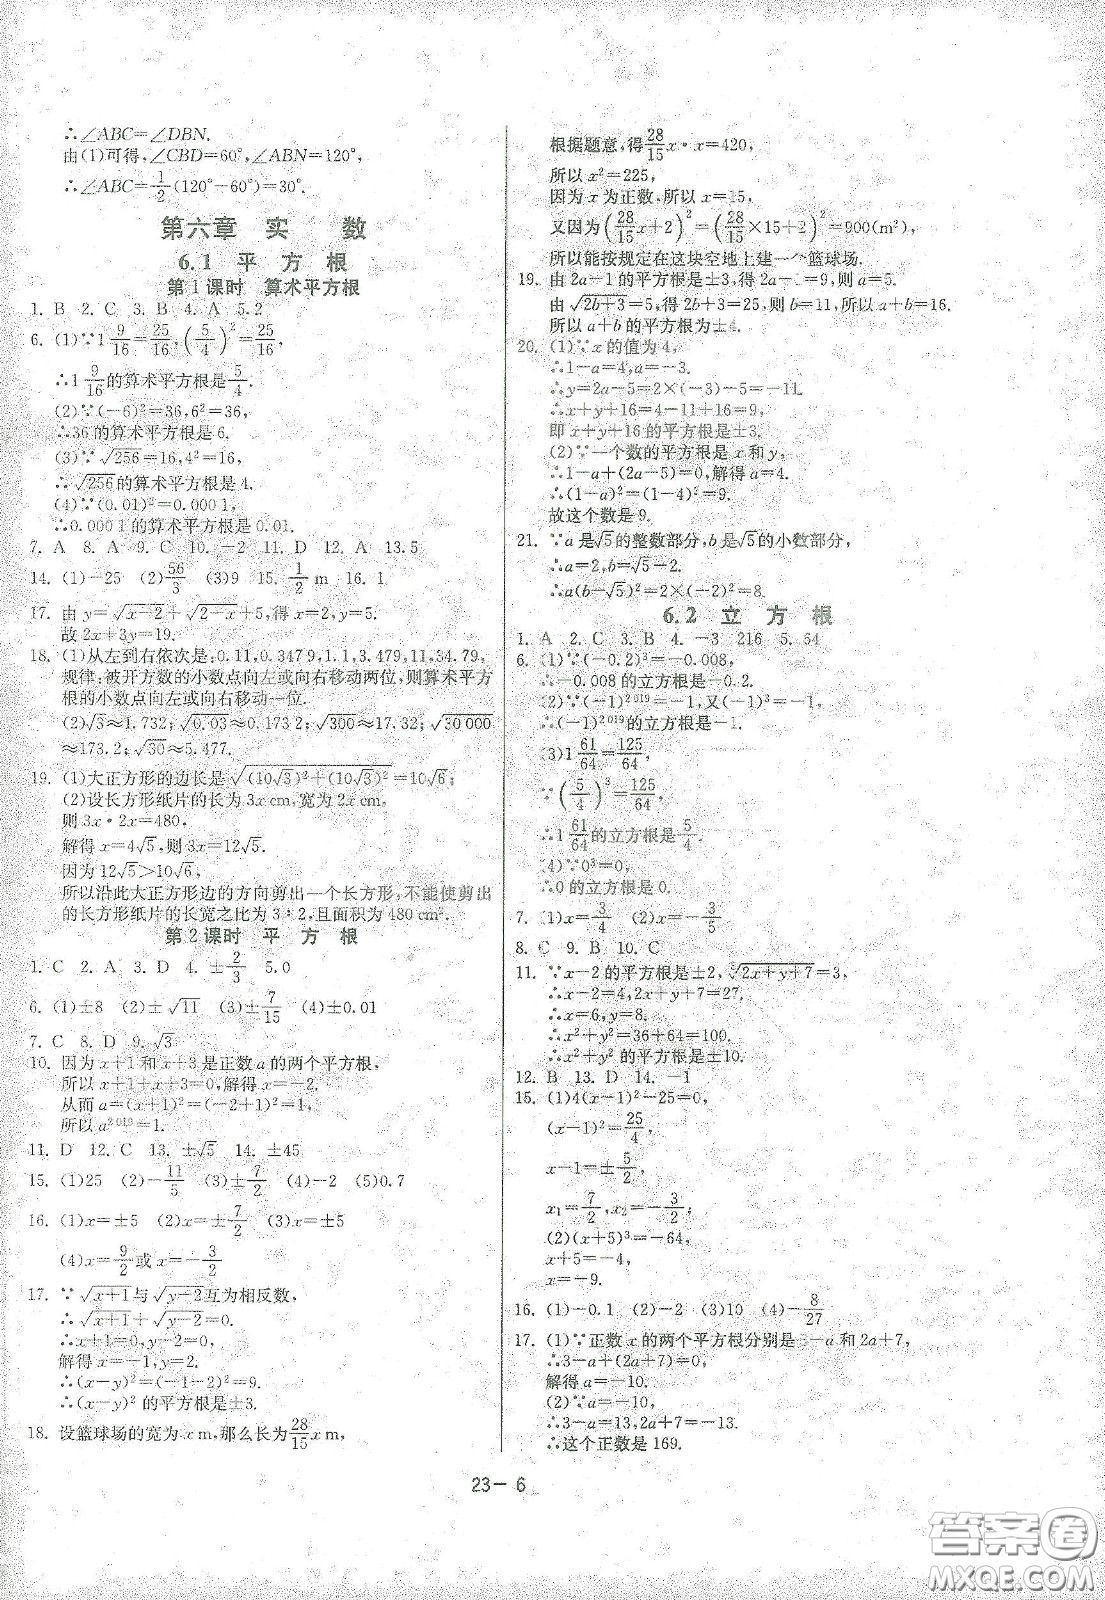 ∴∠ABC=∠DBN.
由(1)可得,∠CBD=60°,∠ABN=120°,
∴∠ABC=1/2(120°-60°)=30°.
第六章 实 数
6.1 平 方 根
第1课时 算术平方根
1. B 2. C 3. B 4. A 5. 2
6. (1)∵1 9/16=25/16,(5/4)²=25/16,
∴1 9/16的算术平方根是5/4.
(2)∵(-6)²=36,6²=36,
∴36的算术平方根是6.
(3)∵√256=16,4²=16,
∴√256的算术平方根是4.
(4)∵(0.01)²=0.000 1,
∴0.000 1的算术平方根是0.01.
7. A 8. A 9. C 10. -2 11. D 12. A 13. 5
14. (1)-25 (2)56/3 (3)9 15. 1/2 m 16. 1
17. 由 y=√x-2+√2-x+5,得 x=2,y=5.
故 2x+3y=19.
18. (1)从左到右依次是:0.11,0.347 9,1.1,3.479,11,34.79,
规律:被开方数的小数点向左或向右移动两位,则算术平方
根的小数点向左或向右移动一位.
(2)√3≈1.732;√0.03≈0.173 2;√300≈17.32;√30 000
≈173.2;√30≈5.477.
19. (1)大正方形的边长是√(10√3)²+(10√3)²=10√6;
(2)设长方形纸片的长为3x cm,宽为2x cm,
则 3x·2x=480.
解得 x=4√5,则 3x=12√5.
因为12√5>10√6,
所以沿此大正方形边的方向剪出一个长方形,不能使剪出
的长方形纸片的长宽之比为3∶2,且面积为480 cm².
第2课时 平 方 根
1. C 2. A 3. D 4. ±2/3 5. 0
6. (1)±8 (2)±√11 (3)±7/15 (4)±0.01
7. C 8. D 9. √3
10. 因为 x+1 和 x+3 是正数 a 的两个平方根,
所以 x+1+x+3=0,解得 x=-2.
从而 a=(x+1)²=(-2+1)²=1.
所以 a²⁰¹⁹=1.
11. D 12. C 13. ±√5 14. ±45
15. (1)25 (2)-11/5 (3)±7/2 (4)-2 (5)0.7
16. (1)x=±5 (2)x=±7/2 (3)x=±5
(4)x=9/2或 x=-3/2
17. ∵√x+1与√y-2互为相反数,
∴√x+1+√y-2=0.
∴x+1=0,y-2=0.
解得 x=-1,y=2.
∴(x-y)²=(-1-2)²=9.
∴(x-y)² 的平方根是±3.
18. 设篮球场的宽为 x m,那么长为28/15x m,
根据题意,得28/15x·x=420,
所以 x²=225,
因为 x 为正数,所以 x=15,
又因为(28/15x+2)²=(28/15×15+2)²=900(m²),
所以能按规定在这块空地上建一个篮球场.
19. 由 2a-1 的平方根是±3,得 2a-1=9,则 a=5.
由√2b+3=5,得 2b+3=25,则 b=11,所以 a+b=16.
所以 a+b 的平方根为±4.
20. (1)∵x 的值为 4,
∴1-a=4,a=-3.
∴y=2a-5=2×(-3)-5=-11.
∴x+y+16=4-11+16=9.
即 x+y+16 的平方根是±3.
(2)∵一个数的平方根是 x 和 y,
∴1-a+(2a-5)=0,解得 a=4.
∴(1-a)²=(1-4)²=9.
故这个数是 9.
21. ∵a 是√5的整数部分,b 是√5的小数部分,
∴a=2,b=√5-2.
∴a(b-√5)²=2×(-2)²=8.
6.2 立 方 根
1. A 2. C 3. B 4. -3 216 5. 64
6. (1)∵(-0.2)³=-0.008,
∴-0.008的立方根是-0.2.
(2)∵(-1)²⁰¹⁹=-1,又(-1)³=-1,
∴(-1)²⁰¹⁹的立方根是-1.
(3)1 61/64=125/64,
∵(5/4)³=125/64,
∴1 61/64的立方根是5/4.
(4)∵0³=0,
∴0的立方根是0.
7. (1)x=3/4 (2)x=-3/5
8. C 9. B 10. C
11. ∵x-2 的平方根是±2,³√2x+y+7=3,
∴x-2=4,2x+y+7=27.
∴x=6,y=8.
∴x²+y²=36+64=100.
∴x²+y² 的平方根是±10.
12. B 13. D 14. -1
15. (1)4(x-1)²-25=0,
(x-1)²=25/4,
x-1=±5/2,
x₁=7/2,x₂=-3/2;
(2)(x+5)³=-64,
x+5=-4,
x=-9.
16. (1)-0.1 (2)-2 (3)10 (4)-8/27
17. (1)∵正数 x 的两个平方根分别是 3-a 和 2a+7,
∴3-a+(2a+7)=0,
解得 a=-10.
(2)∵a=-10,
∴3-a=13,2a+7=-13.
∴这个正数是 169.
23- 6
答案圈
MXQE.COM